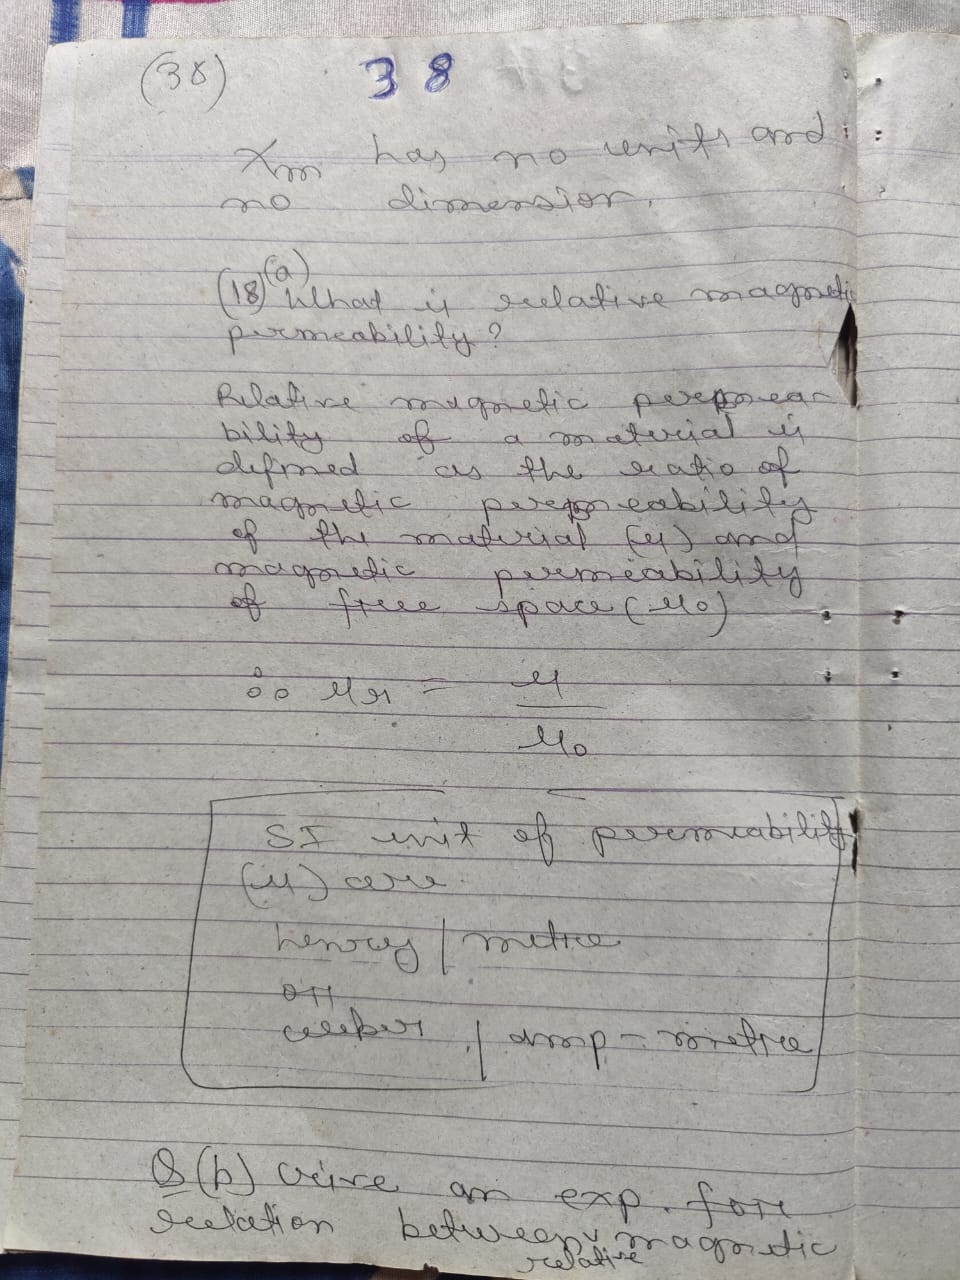 (38) 38
Xm has no units and
no dimension.
(18)(a) What is relative magnetic
permeability?
Relative magnetic permea-
bility of a material is
defined as the ratio of
magnetic permeability
of the material (μ) and
magnetic permeability
of free space (μ0)
∴ μr = μ
μ0
SI unit of permeability
(μ) are
henry / metre
or
weber / amp - metre
Q(b) Give an exp. for
relation between relative magnetic